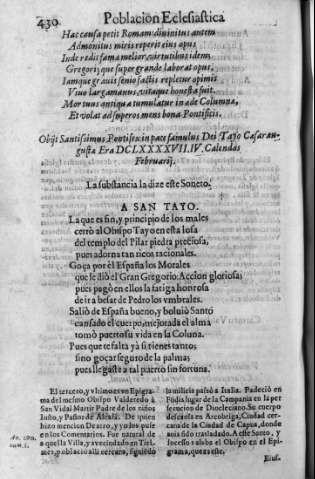 430 Poblacion Eclesiastica
Hac causa petit Romam diuinitus autem
Admonitus miris reperit eius opus
Inde redit fama melior, virtutibus idem
Gregorij que super grande laborat opus,
Iamque grauis senio factis repletur opimis
Viuo largamanus, vitaque honesta fuit.
Mortuus antiqua tumulatur in ade Columna,
Et volat ad superos mens bona Pontificis.
Obijt Santissimus Pontifex in pace famulus Dei Tayo Casarau-
gusta Era DCLXXXXVII. IV. Calendas
Februarij.
La substancia la dize este Soneto.
A SAN TAYO.
La que es fin, y principio de los males
cerrò al Obispo Tayo en esta losa
del templo del Pilar piedra preciosa,
pues adorna tan ricos racionales.
Goça por èl España los Morales
que le diò el Gran Gregorio: Accion gloriosa;
pues pagò en ellos la fatiga honrosa
de ir a besar de Pedro los vmbrales.
Saliò de España bueno, y boluiò Santo
cansado el cuerpo, mejorada el alma
tomò puerto su vida en la Coluna.
Pues que te falta ya si tienes tanto;
sino goçar seguro de la palma;
pues llegaste a tal puerto sin fortuna.
El tercero, y vltimo es vn Epigra-
ma del mesmo Obispo Valderedo à
San Vidal Martir Padre de los niños
Iusto, y Pastor de Alcalà. De quien
hizo mencion Dextro, y yo los puse
en los Comentarios. Fue natural de
aquella Villa, y auecindado en Tiel-
mes, poblacion alli cercana, siguiò
la milicia passò a Italia. Padeciò en
Fūdis lugar de la Campania en la per
secucion de Diocleciano. Su cuerpo
descansa en Arcobriga, Ciudad cer-
cana de la Ciudad de Capua, donde
auia sido trasladado. A este Soto, y
Iocoso alaba el Obispo en el Epi-
grama, que es este.
Eius.